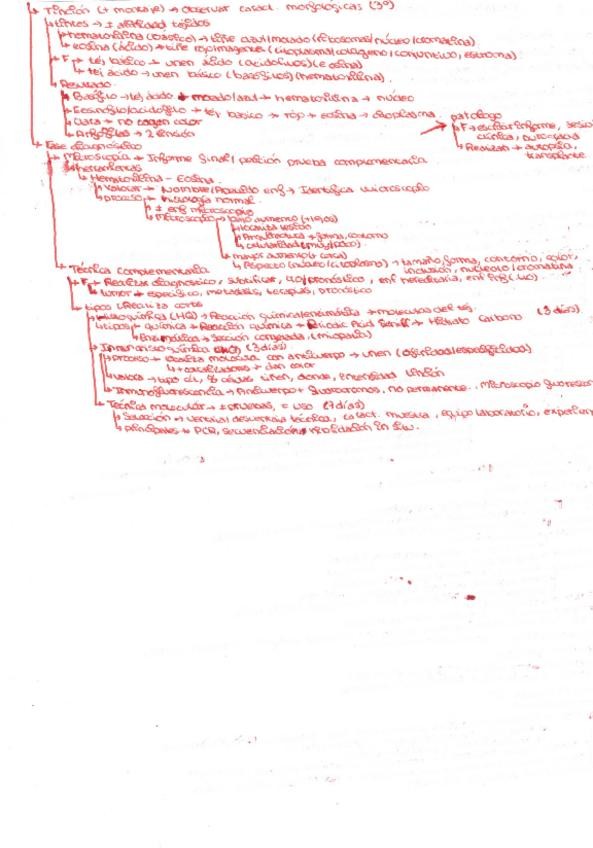 Tinción (+ montaje) → Observar caract. morfológicas (3º)
Tintes → ± afinidad tejidos
hematoxilina (básico) → tiñe azul/morado (ribosomas/núcleo/cromatina)
eosina (ácido) → tiñe rojo (citoplasma/colágeno/
F → tej básico → unen ácido (acidófilos) (eosina)
tej ácido → unen básico (basófilos) (hematoxilina)
Resultado
Basófilo → tej ácido → morado/azul → hematoxilina → núcleo
Eosinófilo/acidófilo → tej básico → rojo → eosina → citoplasma
Clara → no cogen color
Argirófilos → 2 tinción
patólogo
F → escribir informe, sesión
clínica, autocitad
Realizar → autopsia,
transplante
Fase diagnóstico
Microscopía → Informe final / petición prueba complementaria
herramientas
Hematoxilina - Eosina
Valorar → Nombre/Apellido enf → Identifica microscopio
proceso → histología normal
± enf microscopio
Microscopio → bajo aumento (+ lejos)
localiza lesión
Arquitectura → forma, contorno
celularidad
mayor aumento (+ cerca)
Aspecto (núcleo/citoplasma) → tamaño, forma, contorno, color,
inclusión, nucleolo/cromatina
Técnica complementaria
F → Realizar diagnóstico, subtipificar, pronóstico, enf hereditaria, enf
tumor → específico, metástasis, terapias, pronóstico
tipos (Necesita corte)
Histoquímica (HQ) → Reacción química/enzimática → moléculas del tej. (3 días)
tipos → química → Reacción química → Periodic Acid Schiff → Hidrato Carbono
Enzimática → Sección congelada (miopatía)
Inmunohistoquímica (3 días)
proceso → localiza molécula con anticuerpo → unen
+ catalizadores → dan color
valora → tipo cél, % células tiñen, donde, intensidad tinción
Inmunofluorescencia → Anticuerpo + fluorocromos, no permanente, Microscopio fluorescen
Técnica molecular → ± pruebas, = uso (7 días)
Selección → ventaja/desventaja técnica, caract. muestra, equipo laboratorio, experien
principales → PCR, secuenciación, hibridación in situ.